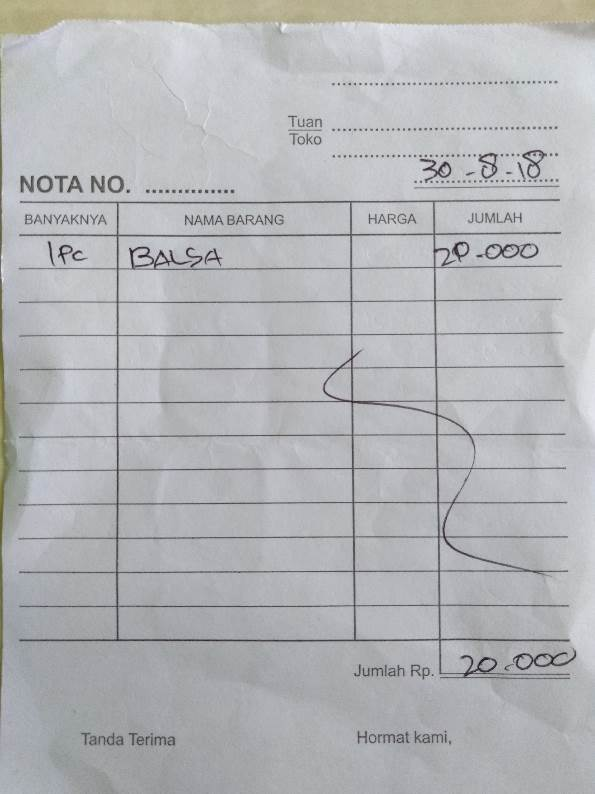 Tuan
Toko
30-8-18
NOTA NO. ..............
BANYAKNYA NAMA BARANG HARGA JUMLAH
1 Pc BALSA 20.000
Jumlah Rp. 20.000
Tanda Terima Hormat kami,